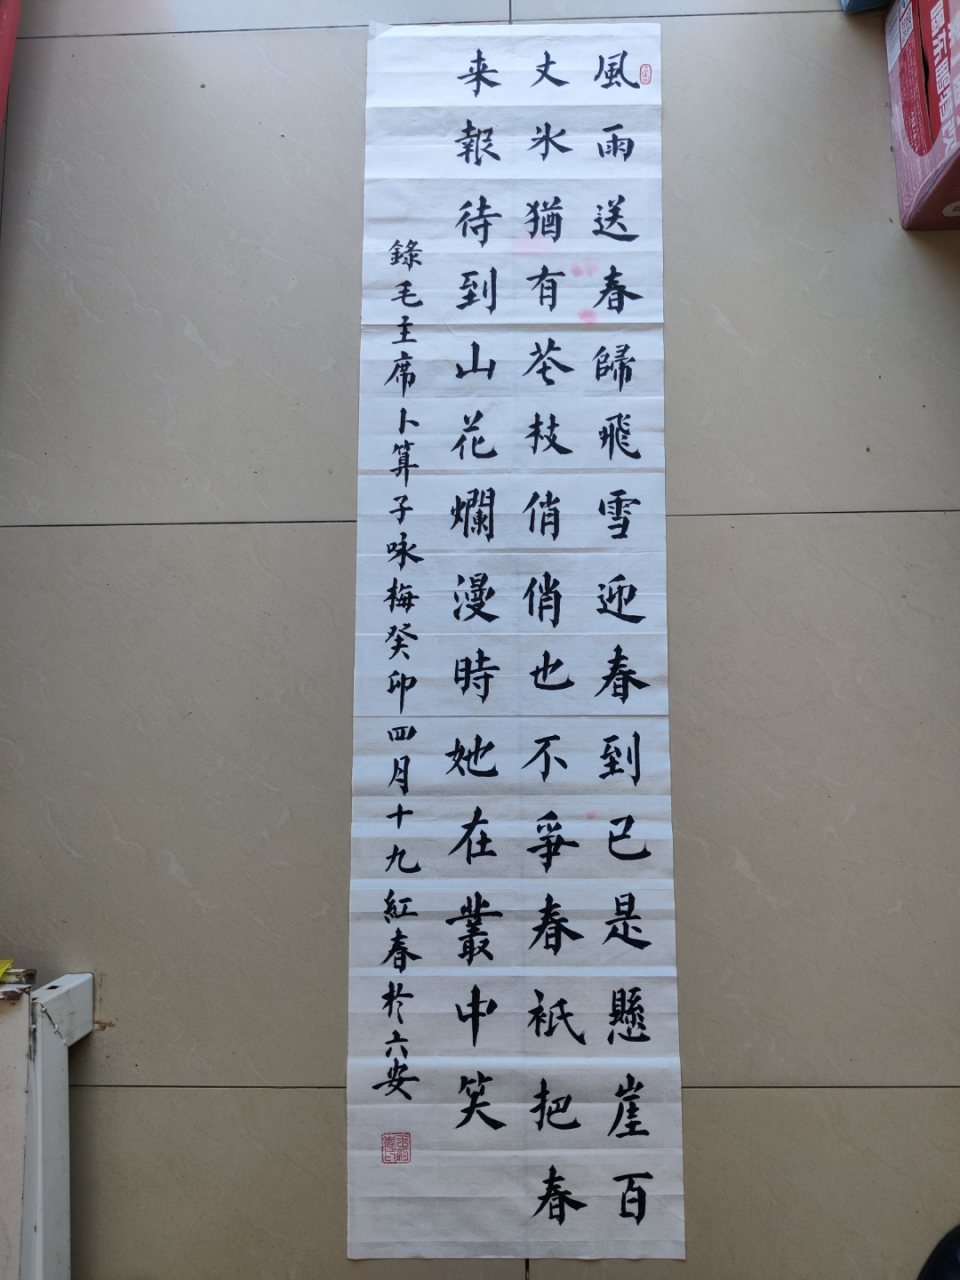 風雨送春歸飛雪迎春到已是懸崖百
丈氷猶有花枝俏俏也不爭春衹把春
来報待到山花爛漫時她在叢中笑
錄毛主席卜算子咏梅癸卯四月十九紅春於六安